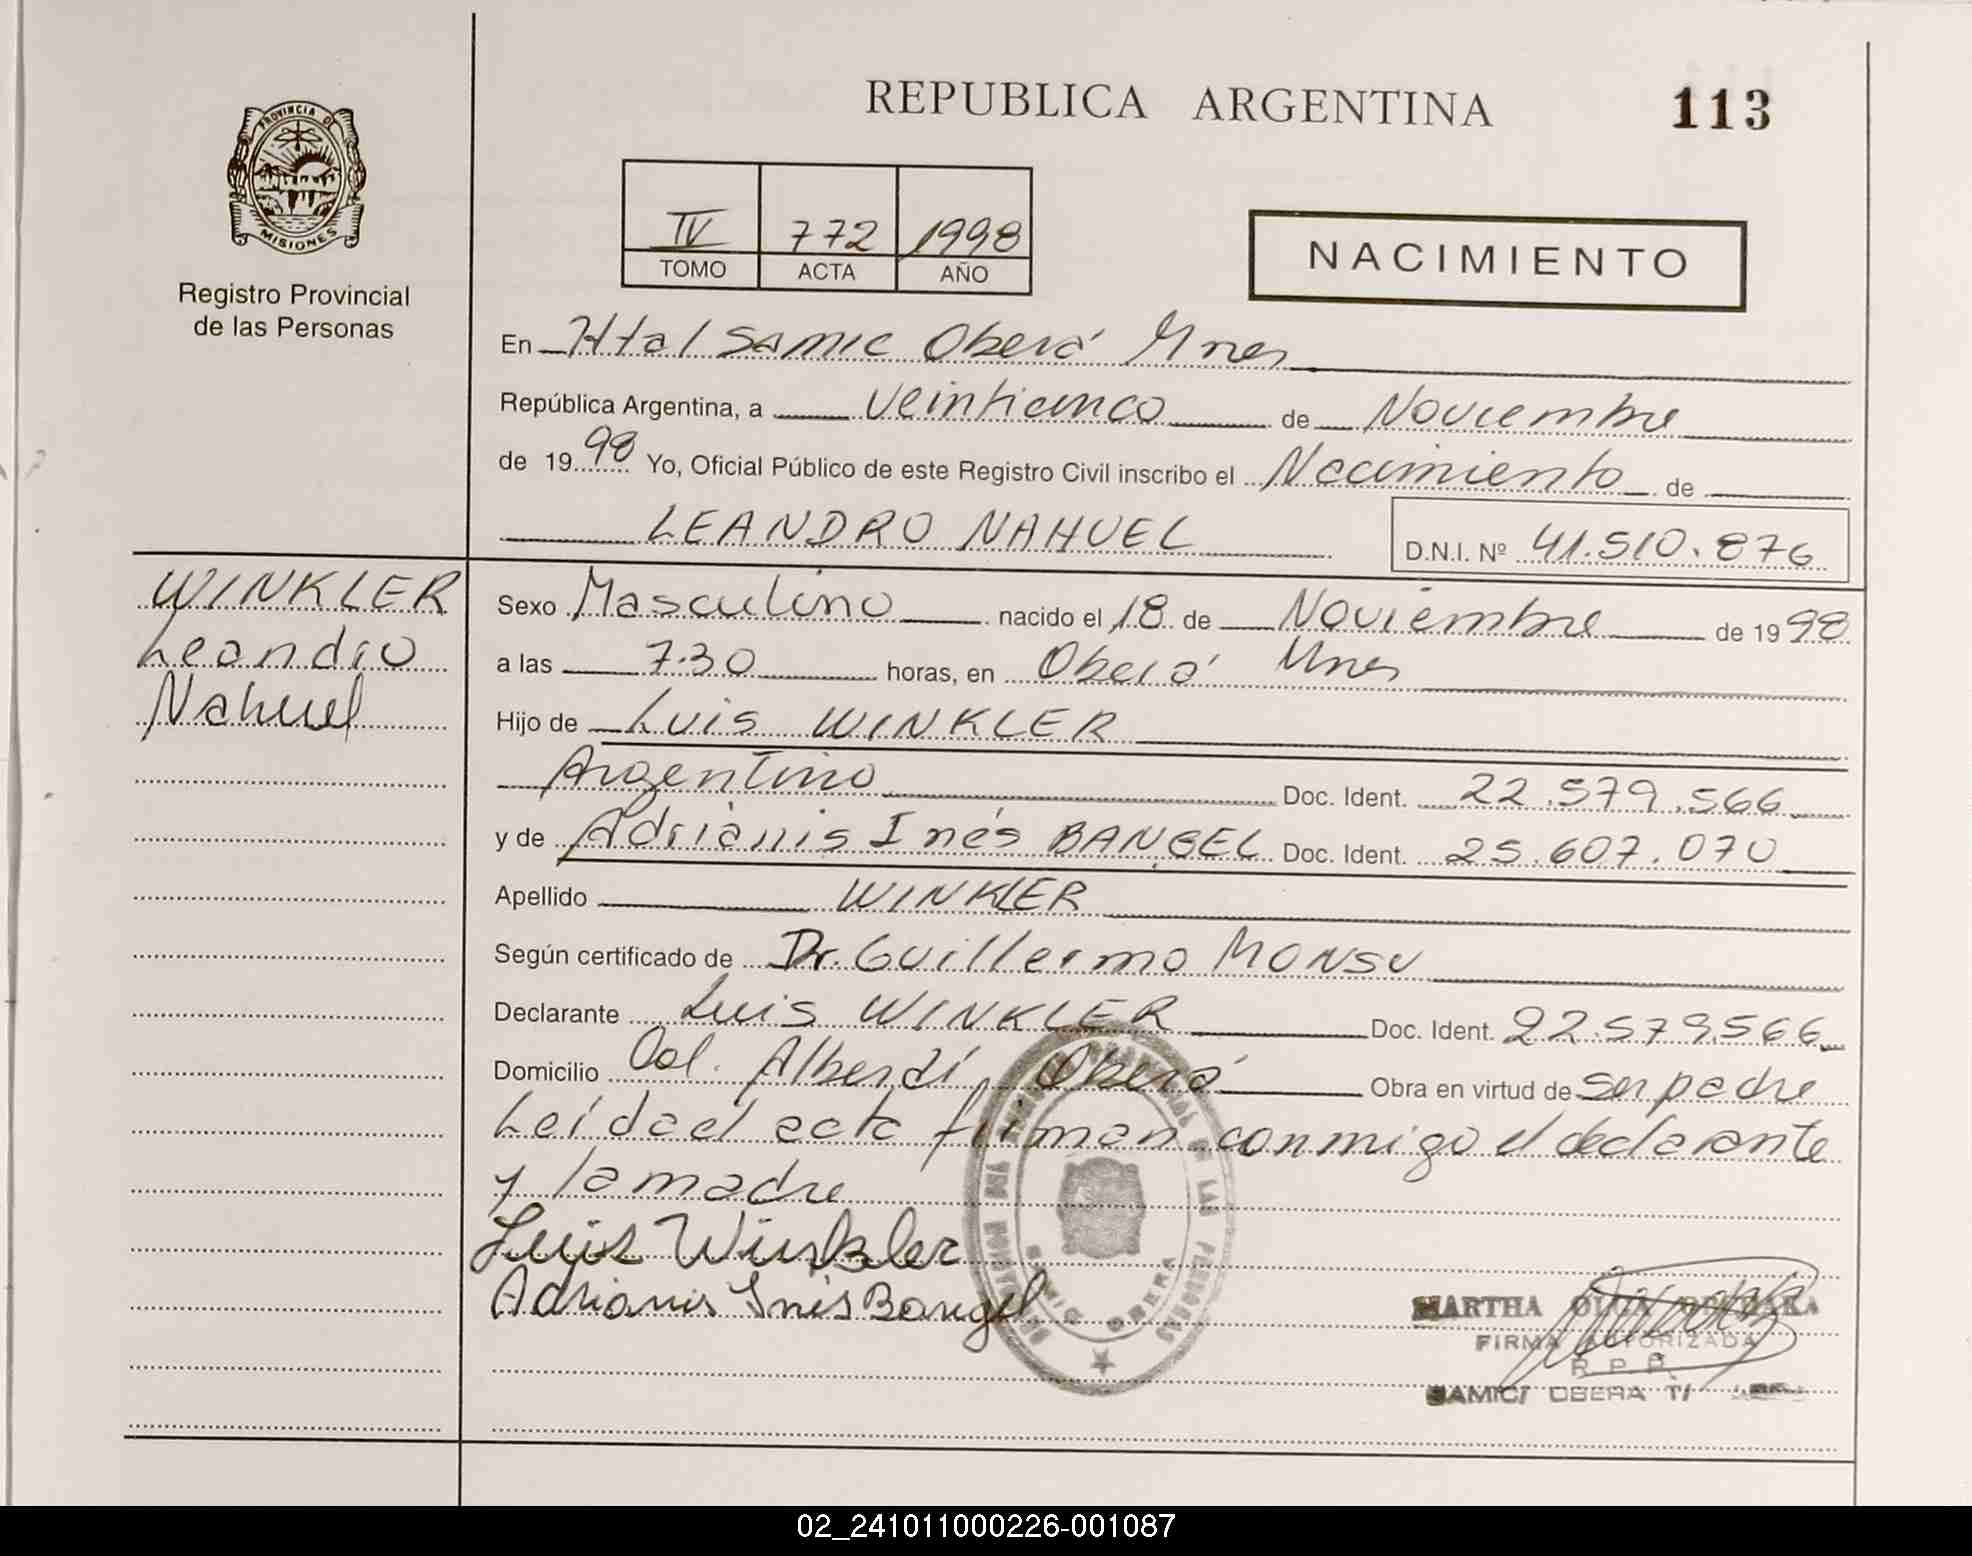 REPUBLICA ARGENTINA
113
PROVINCIA DE
MISIONES
Registro Provincial
de las Personas
IV 772 1998
TOMO ACTA AÑO
NACIMIENTO
En Htal SAMIC Oberá Mnes
República Argentina, a Veinticinco de Noviembre
de 1998 Yo, Oficial Público de este Registro Civil inscribo el Nacimiento de
LEANDRO NAHUEL
D.N.I. Nº 41.510.876
WINKLER
Leandro
Nahuel
Sexo Masculino nacido el 18 de Noviembre de 1998
a las 7.30 horas, en Oberá Mnes
Hijo de Luis WINKLER
Argentino Doc. Ident. 22.579.566
y de Adriánis Inés BANGEL Doc. Ident. 25.607.070
Apellido WINKLER
Según certificado de Dr. Guillermo MONSU
Declarante Luis WINKLER Doc. Ident. 22.579.566
Domicilio Col. Alberdi, Oberá Obra en virtud de ser padre
Leída el acta firman conmigo el declarante
y la madre
Luis Winkler
Adrianis Inés Bangel
DE LAS PERSONAS
SAMIC OBERA
MARTHA OLGA
FIRMA AUTORIZADA
R.P.P.
SAMIC OBERA
02_241011000226-001087